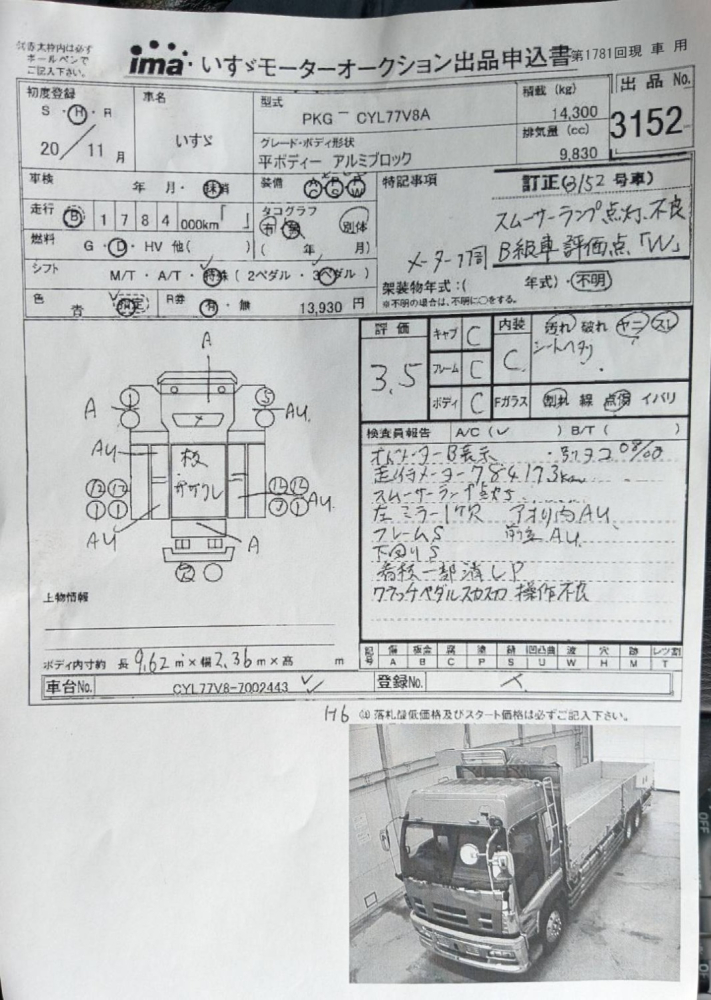 ※赤太枠内は必ず
ボールペンで
ご記入下さい。
ima いすゞモーターオークション出品申込書 第1781回現 車 用
初度登録 S・H・R 20/11月
車名 いすゞ
型式 PKG － CYL77V8A
積載 (kg) 14,300
出品 No. 3152
グレード・ボディ形状
平ボディー アルミブロック
排気量 (cc) 9,830
車検 年 月・抹消
装備 AC PS PW
特記事項 訂正(3152 号車)
走行 B 1 7 8 4 000km「 」
タコグラフ 有・無 別体
( 年 月)
スムーサーランプ点灯、不良
燃料 G・D・HV 他( )
B級車 評価点「W」
シフト M/T・A/T・特殊 (2ペダル・3ペダル)
架装物年式:( 年式)・不明
※不明の場合は、不明に○をする。
色 青
R券 有・無 13,930 円
評価 3.5
キャブ C
フレーム C
ボディ C
内装 C
汚れ 破れ ヤニ スレ
シートヘタリ
Fガラス 割れ 線 点傷 イバリ
検査員報告 A/C(✓ ) B/T( )
走行メーター784173km
スムーサーランプ点灯
フレームS
下回りS
クラッチペダルスカスカ 操作不良
A
A
AU
AU
AU
AU
A
板
上物情報
ボディ内寸約 長 9.62 m×幅 2.36 m×高 m
記号 傷 A 板金 B 腐 C 塗 P 錆 S 凹凸曲 U 波 W 穴 H 跡 M レンズ割 T
車台No. CYL77V8-7002443
登録No.
H6
落札最低価格及びスタート価格は必ずご記入下さい。
OFF